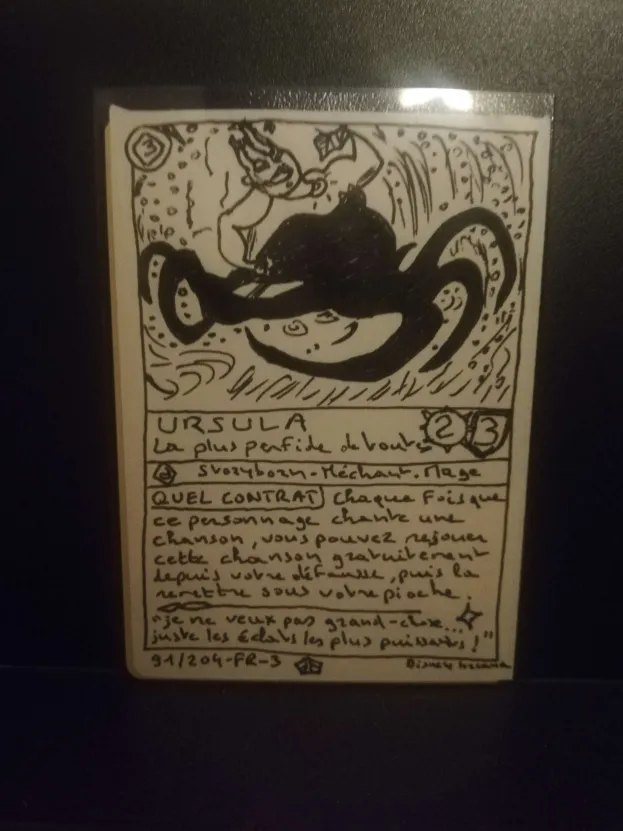 3
URSULA
La plus perfide de toutes
2 3
Storyborn-Méchant. Mage
QUEL CONTRAT chaque fois que
ce personnage chante une
chanson, vous pouvez rejouer
cette chanson gratuitement
depuis votre défausse, puis la
remettre sous votre pioche.
"je ne veux pas grand-chose...
juste les éclats les plus puissants !"
91/204-FR-3
Disney Lorcana